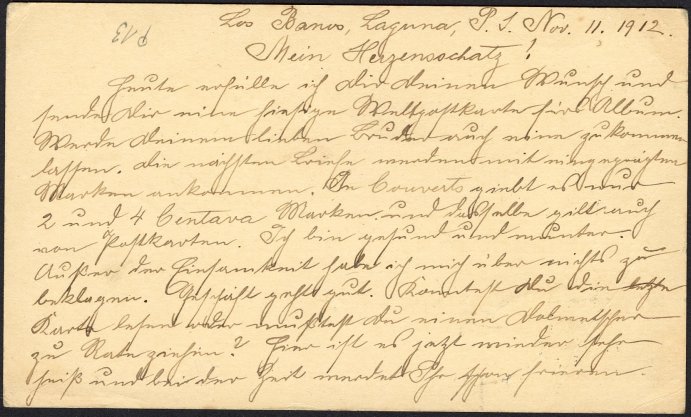 P 13
Los Banos, Laguna, P. I. Nov. 11. 1912.
Mein Herzensschatz!
Heute erfülle ich Dir deinen Wunsch und
sende Dir eine hiesige Weltpostkarte fürs Album.
Werde deinem lieben Bruder auch eine zukommen
lassen. Die nächsten Briefe werden mit eingeprägten
Marken ankommen. In Couverts giebt es nur
2 und 4 Centava Marken und dasselbe gilt auch
von Postkarten. Ich bin gesund und munter.
Außer der Einsamkeit habe ich mich über nichts zu
beklagen. Geschäft geht gut. Konntest du die letzte
Karte lesen oder mußtest du einen Dolmetscher
zu Rate ziehen? Hier ist es jetzt wieder sehr
heiß und bei der Zeit werdet Ihr schon frieren.